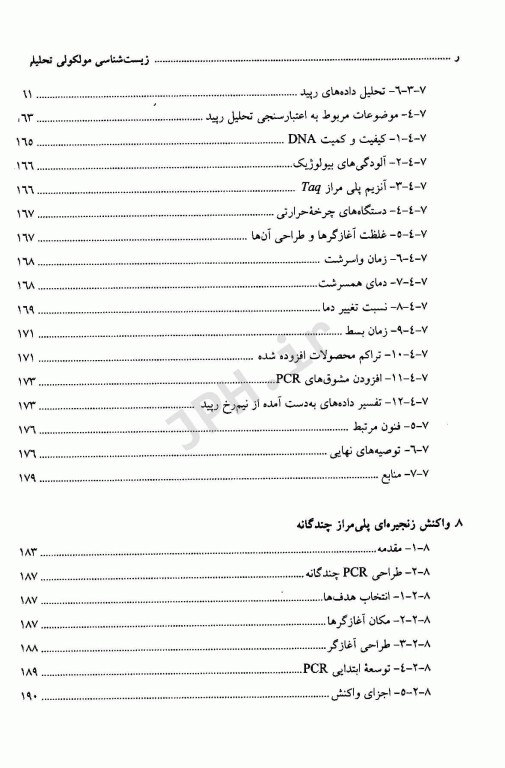 ر ........ زیست‌شناسی مولکولی تحلیلی
۷-۳-۶- تحلیل داده‌های رپید ........ ۶۱
۷-۴- موضوعات مربوط به اعتبارسنجی تحلیل رپید ........ ۶۳
۷-۴-۱- کیفیت و کمیت DNA ........ ۱۶۵
۷-۴-۲- آلودگی‌های بیولوژیک ........ ۱۶۶
۷-۴-۳- آنزیم پلی مراز Taq ........ ۱۶۶
۷-۴-۴- دستگاه‌های چرخهٔ حرارتی ........ ۱۶۷
۷-۴-۵- غلظت آغازگرها و طراحی آن‌ها ........ ۱۶۷
۷-۴-۶- زمان واسرشت ........ ۱۶۸
۷-۴-۷- دمای همسرشت ........ ۱۶۸
۷-۴-۸- نسبت تغییر دما ........ ۱۶۹
۷-۴-۹- زمان بسط ........ ۱۷۱
۷-۴-۱۰- تراکم محصولات افزوده شده ........ ۱۷۱
۷-۴-۱۱- افزودن مشوق‌های PCR ........ ۱۷۳
۷-۴-۱۲- تفسیر داده‌های به‌دست آمده از نیم‌رخ رپید ........ ۱۷۳
۷-۵- فنون مرتبط ........ ۱۷۶
۷-۶- توصیه‌های نهایی ........ ۱۷۶
۷-۷- منابع ........ ۱۷۹
۸ واکنش زنجیره‌ای پلی‌مراز چندگانه
۸-۱- مقدمه ........ ۱۸۳
۸-۲- طراحی PCR چندگانه ........ ۱۸۷
۸-۲-۱- انتخاب هدف‌ها ........ ۱۸۷
۸-۲-۲- مکان آغازگرها ........ ۱۸۷
۸-۲-۳- طراحی آغازگر ........ ۱۸۸
۸-۲-۴- توسعهٔ ابتدایی PCR ........ ۱۸۹
۸-۲-۵- اجزای واکنش ........ ۱۹۰
JPH.ir